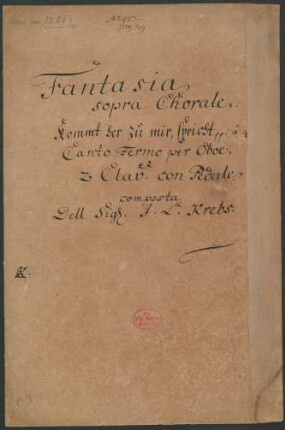 Fantasia
sopra Chorale.
Kommt her zu mir, spricht,, à
Canto Fermo per Oboe.
2 Clav. con Pedale,
composta
Dell Sigl. J. L. Krebs.
K.